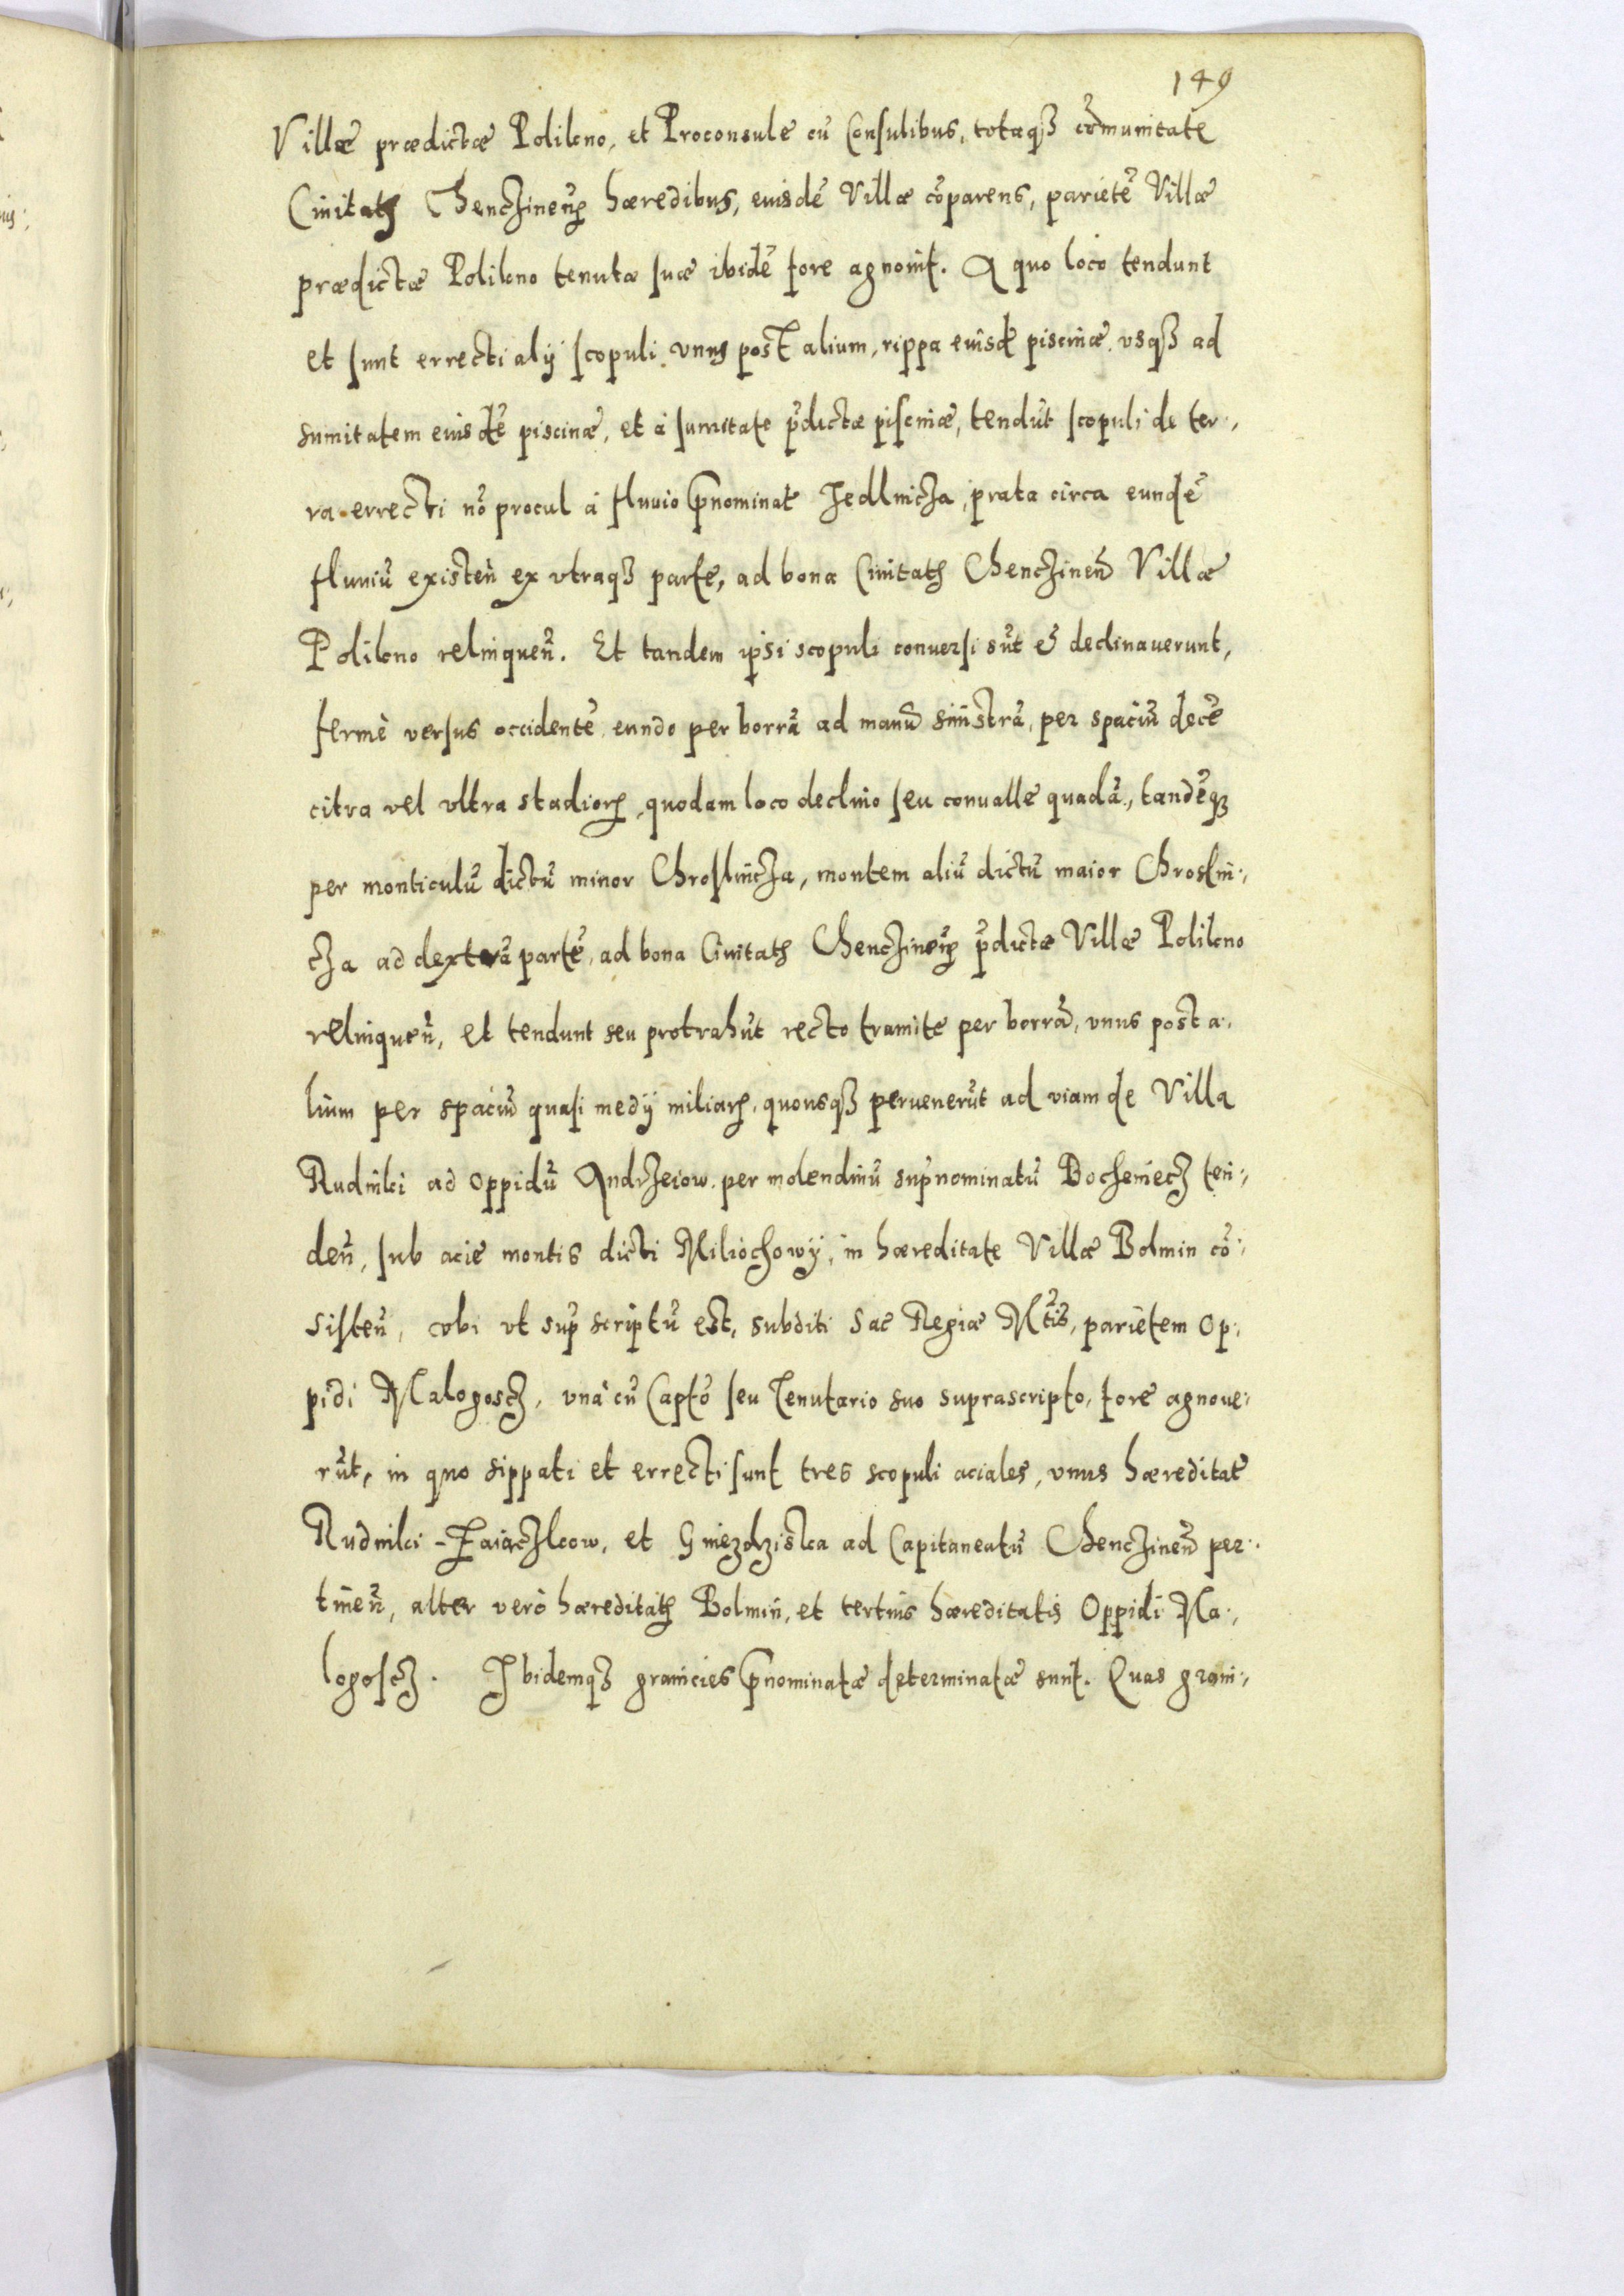 149
Villæ prædictæ Polikno, et Proconsule cũ Consulibus, totaqꝫ cõmunitate
Civitatꝭ Chenczineñ hæredibus, eiusdẽ Villæ cõparens, parietẽ Villæ
prædictæ Polikno tenutæ suæ ibidẽ fore agnovit. A quo loco tendunt
et sunt errecti alÿ scopuli unus post alium, rippa eiusd piscinæ, vsqꝫ ad
sumitatem eiusdẽ piscinæ, et à sumitate p̃dictæ piscinæ, tendũt scopuli de ter-,
ra errecti nõ procul à fluvio p̃nominat Jedlnicza, prata circa eundẽ
fluviũ existeñ ex vtraqꝫ parte, ad bona Civitatꝭ Chenczineñ Villæ
Polikno relinqueñ. Et tandem ipsi scopuli conversi sũt & declinaverunt,
fermè versus occidentẽ, eundo per borrã ad manũ sinistrã, per spaciũ decẽ
citra vel vltra stadioꝝ, quodam loco declivio seu convalle quadã, tandẽqꝫ
per monticulũ dictũ minor Chroslnicza, montem aliũ dictũ maior Chroslni-,
cza ad dexterã partẽ, ad bona Civitatꝭ Chenczineñ p̃dictæ Villæ Polikno
relinqueñ, et tendunt seu protrahũt recto tramite per borrã, vnus post a-,
lium per spaciũ quasi medÿ miliarꝭ, quousqꝫ pervenerũt ad viam de Villa
Rudniki ad Oppidũ Andrzeiow per molendinũ sup̃nominatũ Bocheniecz ten-,
deñ, sub acie montis dicti Miliochowÿ, in hæreditate Villæ Bolmin cõ-,
sisteñ, vbi vt sup̃ scriptũ est, subditi Sac Regiæ Mtis, parietem Op-,
pidi Malogoscz, vnà cũ Captõ seu Tenutario suo suprascripto, fore agnove-,
rũt, in quo sippati et errecti sunt tres scopuli aciales, vnus hæreditat
Rudniki - Zaiaczkow, et Gniezdziska ad Capitaneatũ Chenczineñ per-,
tineñ, alter verò hæreditatꝭ Bolmin, et tertius hæreditatis Oppidi Ma-,
logoscz. Ibidemqꝫ granicies p̃nominatæ determinatæ sunt. Quas grani-,